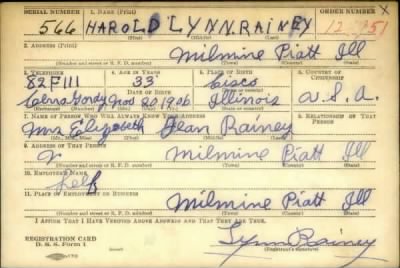 SERIAL NUMBER 1. NAME (Print) ORDER NUMBER
566 HAROLD LYNN RAINEY
(First) (Middle) (Last)
2. ADDRESS (Print)
Milmine Piatt Ill
(Number and street or R. F. D. number) (Town) (County) (State)
3. TELEPHONE 4. AGE IN YEARS 5. PLACE OF BIRTH 6. COUNTRY OF CITIZENSHIP
82F111 33 Cisco
DATE OF BIRTH (Town or county)
Cerro Gordo Nov 20 1906 Illinois U.S.A.
(Exchange) (Number) (Mo.) (Day) (Yr.) (State or country)
7. NAME OF PERSON WHO WILL ALWAYS KNOW YOUR ADDRESS 8. RELATIONSHIP OF THAT PERSON
Mrs Elizabeth Jean Rainey
(Mr., Mrs., Miss) (First) (Middle) (Last)
9. ADDRESS OF THAT PERSON
Milmine Piatt Ill
(Number and street or R. F. D. number) (Town) (County) (State)
10. EMPLOYER'S NAME
Self
11. PLACE OF EMPLOYMENT OR BUSINESS
Milmine Piatt Ill
(Number and street or R. F. D. number) (Town) (County) (State)
I AFFIRM THAT I HAVE VERIFIED ABOVE ANSWERS AND THAT THEY ARE TRUE.
REGISTRATION CARD
D. S. S. Form 1
Lynn Rainey
(Registrant's signature)